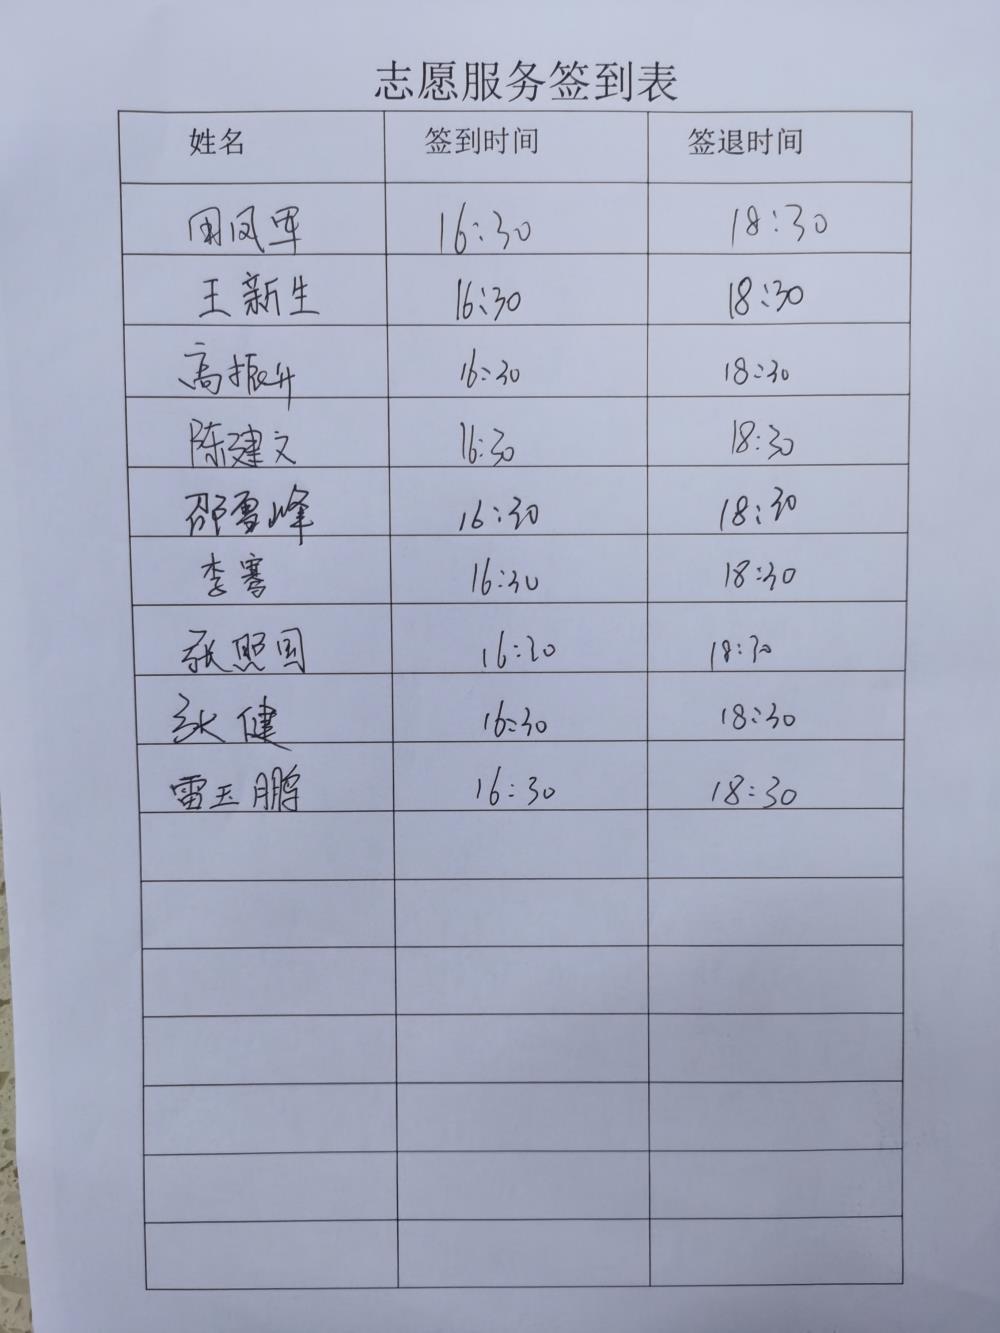 志愿服务签到表
姓名 签到时间 签退时间
周凤军 16:30 18:30
王新生 16:30 18:30
高振升 16:30 18:30
陈建文 16:30 18:30
邵雪峰 16:30 18:30
李骞 16:30 18:30
张照国 16:30 18:30
张健 16:30 18:30
雷玉鹏 16:30 18:30